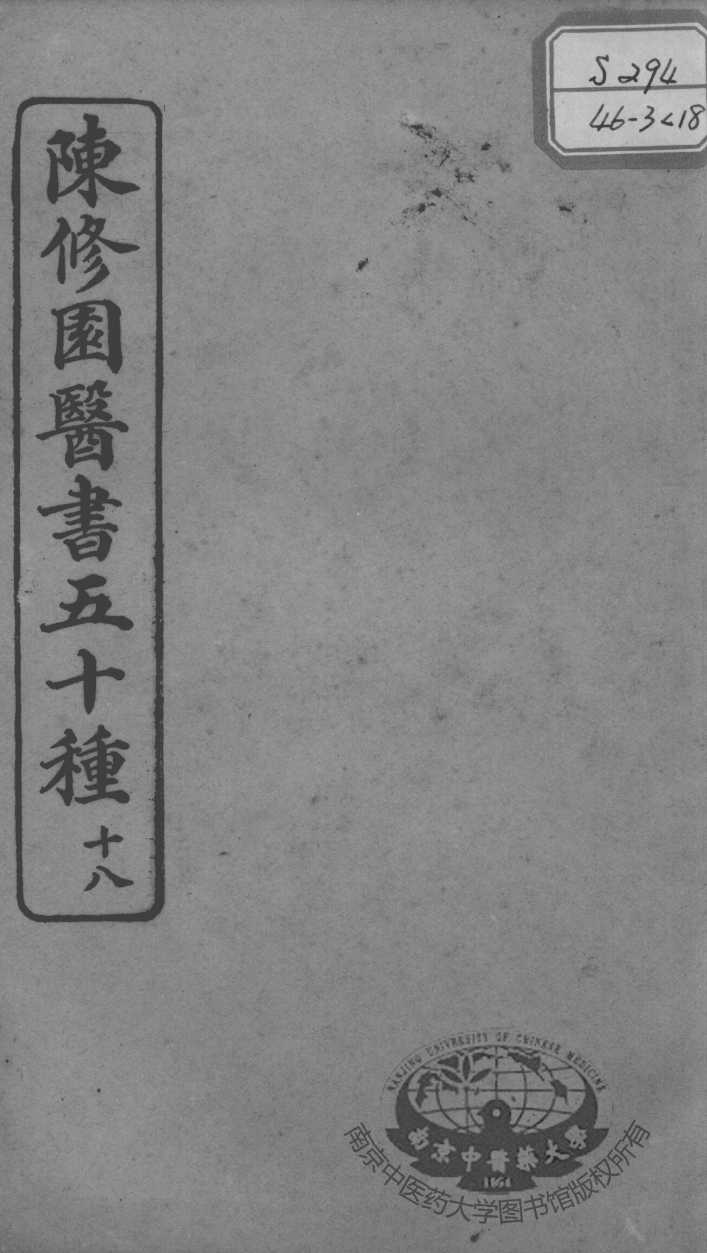 S294
46-3<18
陳修園醫書五十種
十八
NANJING UNIVERSITY OF CHINESE MEDICINE
南京中醫藥大學
1954
南京中医药大学图书馆版权所有